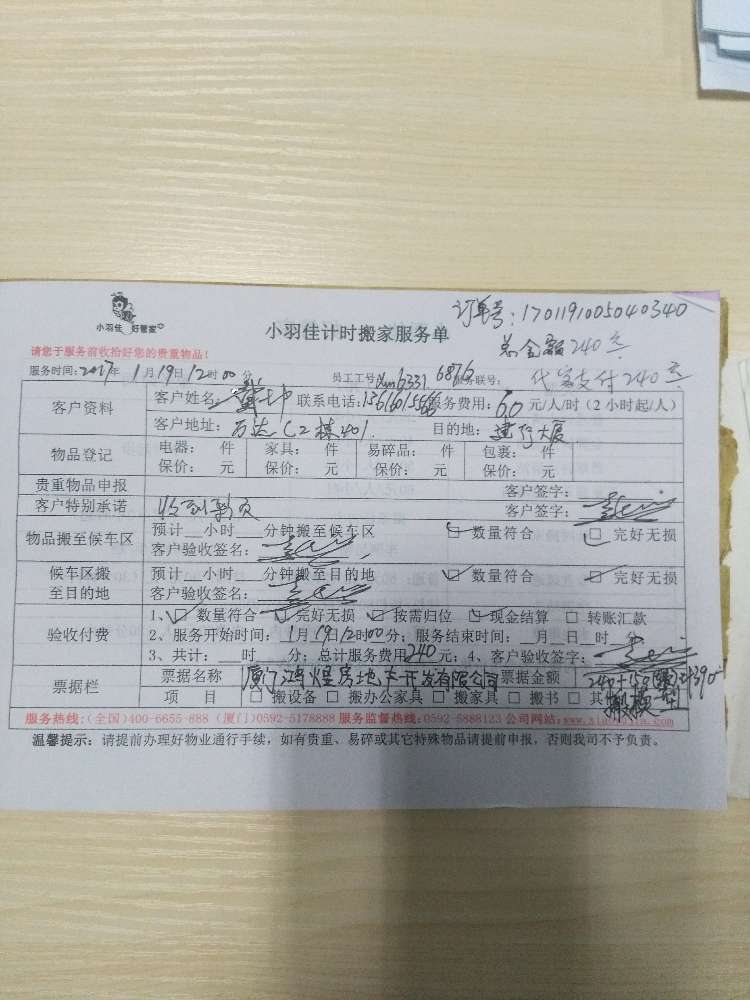 小羽佳 好管家
小羽佳计时搬家服务单
订单号:170119105040340
总金额240元
代客支付240元
请您于服务前收拾好您的贵重物品!
服务时间:2017年 1月19日12时00分 员工工号: 6331 6876 服务联号:
客户资料
客户姓名: 联系电话: 服务费用:60 元/人/时(2小时起/人)
客户地址:万达C2栋401 目的地:建行大厦
物品登记
电器: 件 家具: 件 易碎品: 件 包裹: 件
保价: 元 保价: 元 保价: 元 保价: 元
贵重物品申报 客户签字:
客户特别承诺 收到款员 客户签字:
物品搬至候车区
预计__小时__分钟搬至候车区 数量符合 完好无损
客户验收签名:
候车区搬至目的地
预计__小时__分钟搬至目的地 数量符合 完好无损
客户验收签名:
验收付费
1、数量符合 完好无损 按需归位 现金结算 转账汇款
2、服务开始时间:1月19日12时00分;服务结束时间:__月__日__时__分
3、共计:__时__分;总计服务费用240元;4、客户验收签字:
票据栏
票据名称 厦门 房地产开发有限公司 票据金额 240+
项 目 搬设备 搬办公家具 搬家具 搬书 其他
服务热线:(全国)400-6655-888 (厦门)0592-5178888 服务监督热线:0592-5888123 公司网站:
温馨提示:请提前办理好物业通行手续,如有贵重、易碎或其它特殊物品请提前申报,否则我司不予负责。